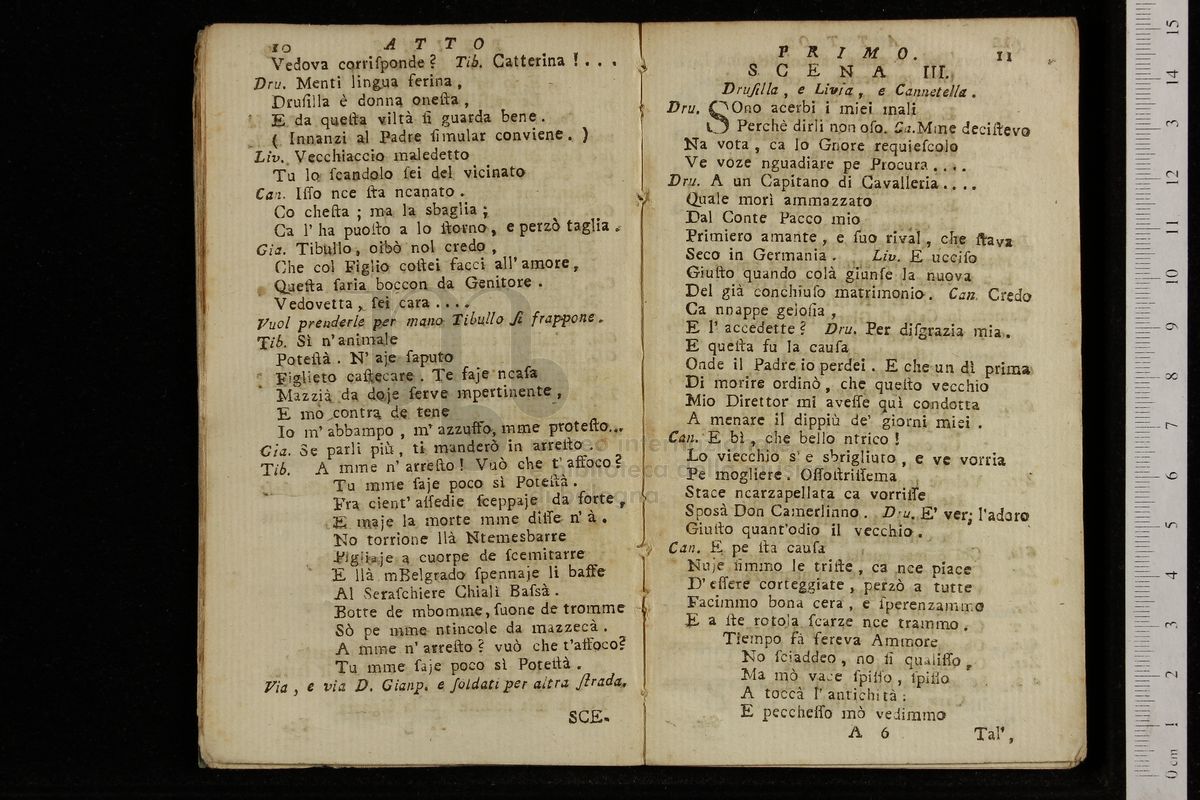 10 A T T O
Vedova corriſponde? Tib. Catterina ! . . .
Dru. Menti lingua ferina,
Druſilla è donna oneſta,
E da queſta viltà ſi guarda bene.
( Innanzi al Padre ſimular conviene. )
Liv. Vecchiaccio maledetto
Tu lo ſcandolo ſei del vicinato
Can. Iſſo nce ſta ncanato.
Co cheſta; ma la sbaglia;
Ca l'ha puoſto a lo ſtorno, e perzò taglia.
Gia. Tibullo, oibò nol credo,
Che col Figlio coſtei facci all'amore,
Queſta ſaria boccon da Genitore.
Vedovetta, ſei cara....
Vuol prenderle per mano Tibullo ſi frappone.
Tib. Sì n'animale
Poteſtà. N'aje ſaputo
Figlieto caſtecare. Te faje ncaſa
Mazzià da doje ſerve mpertinente,
E mo contra de tene
Io m'abbampo, m'azzuffo, mme proteſto...
Gia. Se parli più, ti manderò in arreſto.
Tib. A mme n'arreſto! Vuò che t'affoco?
Tu mme ſaje poco sì Poteſtà.
Fra cient'aſſedie ſceppaje da forte,
E maje la morte mme diſſe n'à.
No torrione llà Ntemesbarre
Pigliaje a cuorpe de ſcemitarre
E llà mBelgrado ſpennaje li baffe
Al Seraſchiere Chialì Baſsà.
Botte de mbomme, ſuone de tromme
Sò pe mme ntincole da mazzecà.
A mme n'arreſto? vuò che t'affoco?
Tu mme ſaje poco sì Poteſtà.
Via, e via D. Gianp. e ſoldati per altra ſtrada.
SCE-
P R I M O. 11
S C E N A III.
Druſilla, e Livia, e Cannetella.
Dru. SOno acerbi i miei mali
Perchè dirli non oſo. Ca. Mme deciſtevo
Na vota, ca lo Gnore requieſcolo
Ve voze nguadiare pe Procura....
Dru. A un Capitano di Cavalleria....
Quale morì ammazzato
Dal Conte Pacco mio
Primiero amante, e ſuo rival, che ſtava
Seco in Germania. Liv. E ucciſo
Giuſto quando colà giunſe la nuova
Del già conchiuſo matrimonio. Can. Credo
Ca nnappe geloſia,
E l'accedette? Dru. Per diſgrazia mia.
E queſta fu la cauſa
Onde il Padre io perdei. E che un dì prima
Di morire ordinò, che queſto vecchio
Mio Direttor mi aveſſe quì condotta
A menare il dippiù de' giorni miei.
Can. E bì, che bello ntrico!
Lo viecchio s'e sbrigliuto, e ve vorria
Pe mogliere. Oſſoſtriſſema
Stace ncarzapellata ca vorriſſe
Sposà Don Camerlinno. Dru. E' ver; l'adoro
Giuſto quant'odio il vecchio.
Can. E pe ſta cauſa
Nuje ſimmo le triſte, ca nce piace
D'eſſere corteggiate, perzò a tutte
Facimmo bona cera, e ſperenzammo
E a ſte rotola ſcarze nce trammo.
Tiempo fà ſereva Ammore
No ſciaddeo, no ſi qualiſſo,
Ma mò vace ſpiſſo, ſpiſſo
A toccà l'antichità:
E peccheſſo mò vedimmo
A 6 Tal',